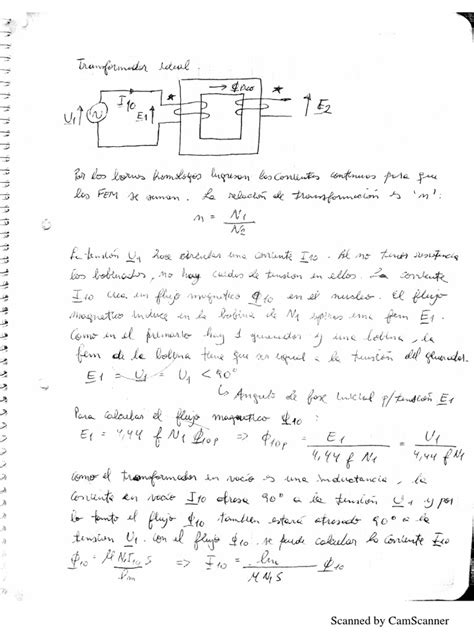 Transformador ideal.
I10 → ϕ10
U1 E1 E2
Por los bornes homologos ingresan las corrientes continuas para que
las FEM se suman. La relación de transformación es "n":
n = N1/N2
La tensión U1 hace circular una corriente I10. Al no tener resistencia
los bobinados, no hay caidas de tension en ellos. La corriente
I10 crea un flujo magnetico ϕ10 en el nucleo. El flujo
magnetico induce en la bobina de N1 espiras una fem E1.
Como en el primario hay 1 generador y una bobina, la
fem de la bobina tiene que ser igual a la tensión del generador.
E1 = U1 = U1 < 90°
↳ Angulo de fase inicial p/tensión E1
Para calcular el flujo magnetico ϕ10:
E1 = 4,44 f N1 ϕ10p ⇒ ϕ10p = E1/(4,44 f N1) = U1/(4,44 f N1)
como el transformador en vacio es una inductancia, la
corriente en vacio I10 atrasa 90° a la tensión U1 y por
lo tanto el flujo ϕ10 tambien estará atrasado 90° a la
tension U1. con el flujo ϕ10 se puede calcular la corriente I10
ϕ10 = μ N1 I10 S / lm ⇒ I10 = lm/(μ N1 S) ϕ10
Scanned by CamScanner